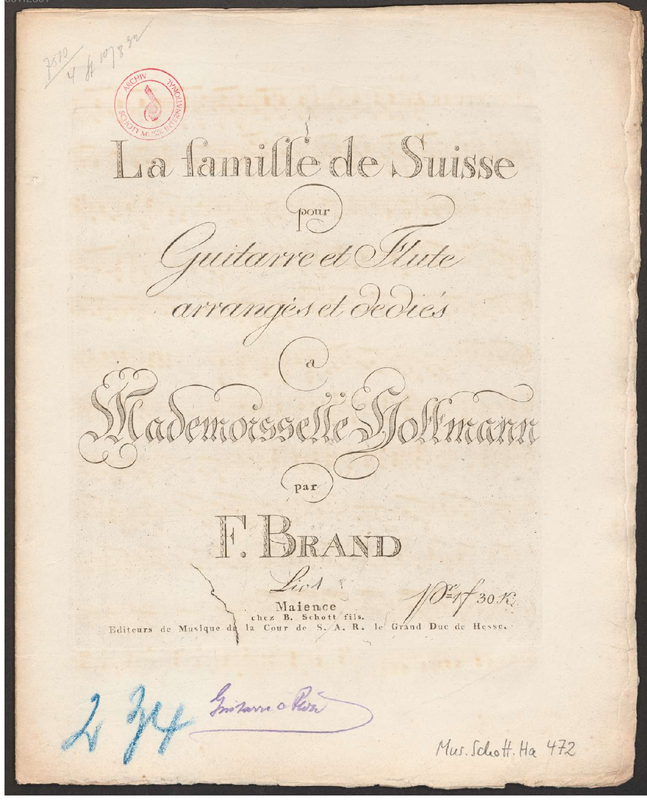 7510
4 # 10/832
ARCHIV SCHOTT MUSIK INTERNATIONAL
La famille de Suisse
pour
Guitarre et Flute
arrangés et dediés
a
Mademoisselle Hoffmann
par
F. BRAND
Liv 1
Maience
chez B. Schott fils.
30 K
Editeurs de Musique de la Cour de S. A. R. le Grand Duc de Hesse.
2 34
Guitarre
Mus. Schott. Ha 472